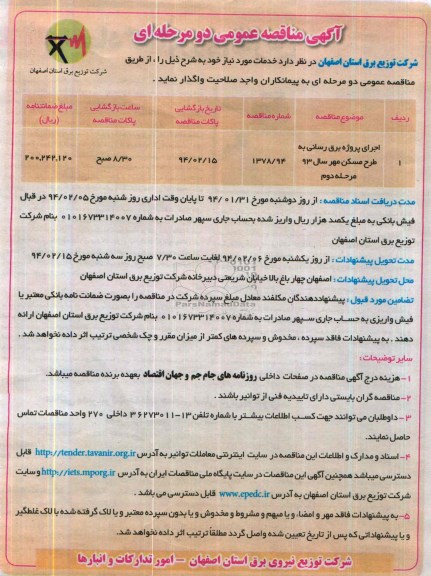 آگهی مناقصه عمومی دو مرحله ای
شرکت توزیع برق استان اصفهان در نظر دارد خدمات مورد نیاز خود به شرح ذیل را ، از طریق
مناقصه عمومی دو مرحله ای به پیمانکاران واجد صلاحیت واگذار نماید .
شرکت توزیع برق استان اصفهان
ردیف موضوع مناقصه شماره مناقصه تاریخ بازگشایی پاکات مناقصه ساعت بازگشایی پاکات مناقصه مبلغ ضمانتنامه (ریال)
۱ اجرای پروژه برق رسانی به طرح مسکن مهر سال ۹۳ مرحله دوم ۱۳۷۸/۹۴ ۹۴/۰۲/۱۵ ۸/۳۰ صبح ۲۰۰,۲۴۲,۱۲۰
مدت دریافت اسناد مناقصه : از روز دوشنبه مورخ ۹۴/۰۱/۳۱ تا پایان وقت اداری روز شنبه مورخ ۹۴/۰۲/۰۵ در قبال
فیش بانکی به مبلغ یکصد هزار ریال واریز شده بحساب جاری سپهر صادرات به شماره ۰۱۰۱۶۷۳۳۱۴۰۰۷ بنام شرکت
توزیع برق استان اصفهان
مدت تحویل پیشنهادات : از روز یکشنبه مورخ ۹۴/۰۲/۰۶ لغایت ساعت ۷/۳۰ صبح روز سه شنبه مورخ ۹۴/۰۲/۱۵
محل تحویل پیشنهادات : اصفهان چهار باغ بالا خیابان شریعتی دبیرخانه شرکت توزیع برق استان اصفهان
تضامین مورد قبول : پیشنهاددهندگان مکلفند معادل مبلغ سپرده شرکت در مناقصه را بصورت ضمانت نامه بانکی معتبر یا
فیش واریزی به حساب جاری سپهر صادرات به شماره ۰۱۰۱۶۷۳۳۱۴۰۰۷ بنام شرکت توزیع برق استان اصفهان ارائه
دهند . به پیشنهادات فاقد سپرده ، مخدوش و سپرده های کمتر از میزان مقرر و چک شخصی ترتیب اثر داده نخواهد شد .
سایر توضیحات:
۱- هزینه درج آگهی مناقصه در صفحات داخلی روزنامه های جام جم و جهان اقتصاد بعهده برنده مناقصه میباشد.
۲- مناقصه گران بایستی دارای تاییدیه فنی از توانیر باشند .
۳- داوطلبان می توانند جهت کسب اطلاعات بیشتر با شماره تلفن ۱۳-۳۶۲۷۳۰۱۱ داخلی ۲۷۰ واحد مناقصات تماس
حاصل نمایند.
۴- اسناد و مدارک و اطلاعات این مناقصه در سایت اینترنتی معاملات توانیر به آدرس http://tender.tavanir.org.ir قابل
دسترسی میباشد همچنین آگهی این مناقصات در سایت پایگاه ملی مناقصات ایران به آدرس http://iets.mporg.ir و سایت
شرکت توزیع برق استان اصفهان به آدرس www.epedc.ir قابل دسترسی می باشد .
۵- به پیشنهادات فاقد مهر و امضاء و یا مبهم و مشروط و مخدوش و یا بدون سپرده معتبر و یا لاک گرفته شده با لاک غلطگیر
و یا پیشنهاداتی که پس از تاریخ تعیین شده واصل گردد مطلقاً ترتیب اثر داده نخواهد شد.
شرکت توزیع نیروی برق استان اصفهان - امور تدارکات و انبارها